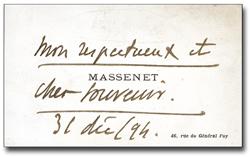 Mon respectueux et
MASSENET
cher souvenir.
31 déc/94.
46, rue du Général Foy